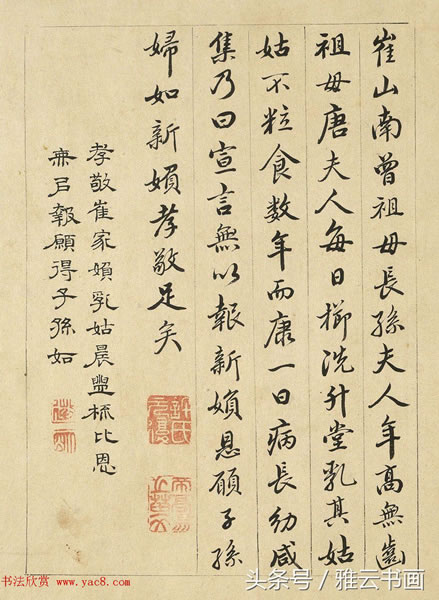 崔山南曾祖母長孫夫人年高無齒
祖母唐夫人每日櫛洗升堂乳其姑
姑不粒食数年而康一日病長幼咸
集乃曰宣言無以報新媍恩願子孫
婦如新媍孝敬足矣
孝敬崔家媍乳姑晨盥梳比恩
無㠯報願得子孫如
书法欣赏 www.yac8.com
头条号 / 雅云书画